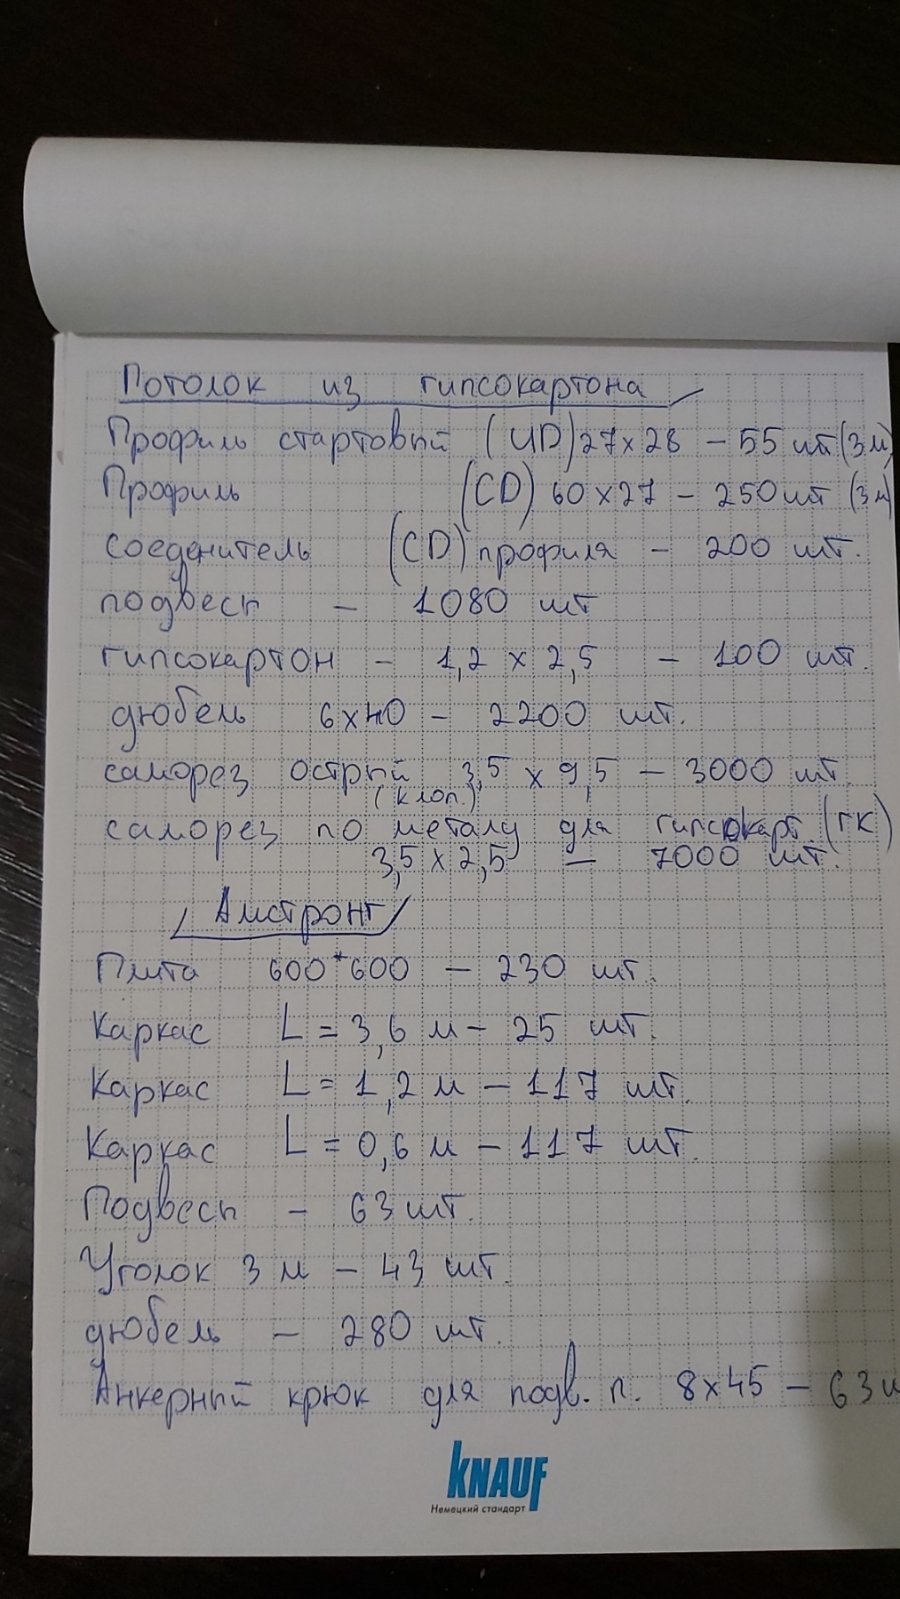 Потолок из гипсокартона
Профиль стартовый (UD) 27x28 – 55 шт (3м)
Профиль (CD) 60x27 – 250 шт (3м)
соеденитель (CD) профиля – 200 шт.
подвесы – 1080 шт
гипсокартон – 1,2 x 2,5 – 100 шт.
дюбель 6x40 – 2200 шт.
саморез острый 3,5 x 9,5 – 3000 шт.
(клоп.)
саморез по металу для гипсокарт (ГК)
3,5 x 2,5 – 7000 шт.
Амстронг
Плита 600*600 – 230 шт.
Каркас L = 3,6 м – 25 шт.
Каркас L = 1,2 м – 117 шт.
Каркас L = 0,6 м – 117 шт.
Подвесы – 63 шт.
Уголок 3 м – 43 шт.
дюбель – 280 шт.
Анкерный крюк для подв. п. 8x45 – 63 ш
KNAUF
Немецкий стандарт